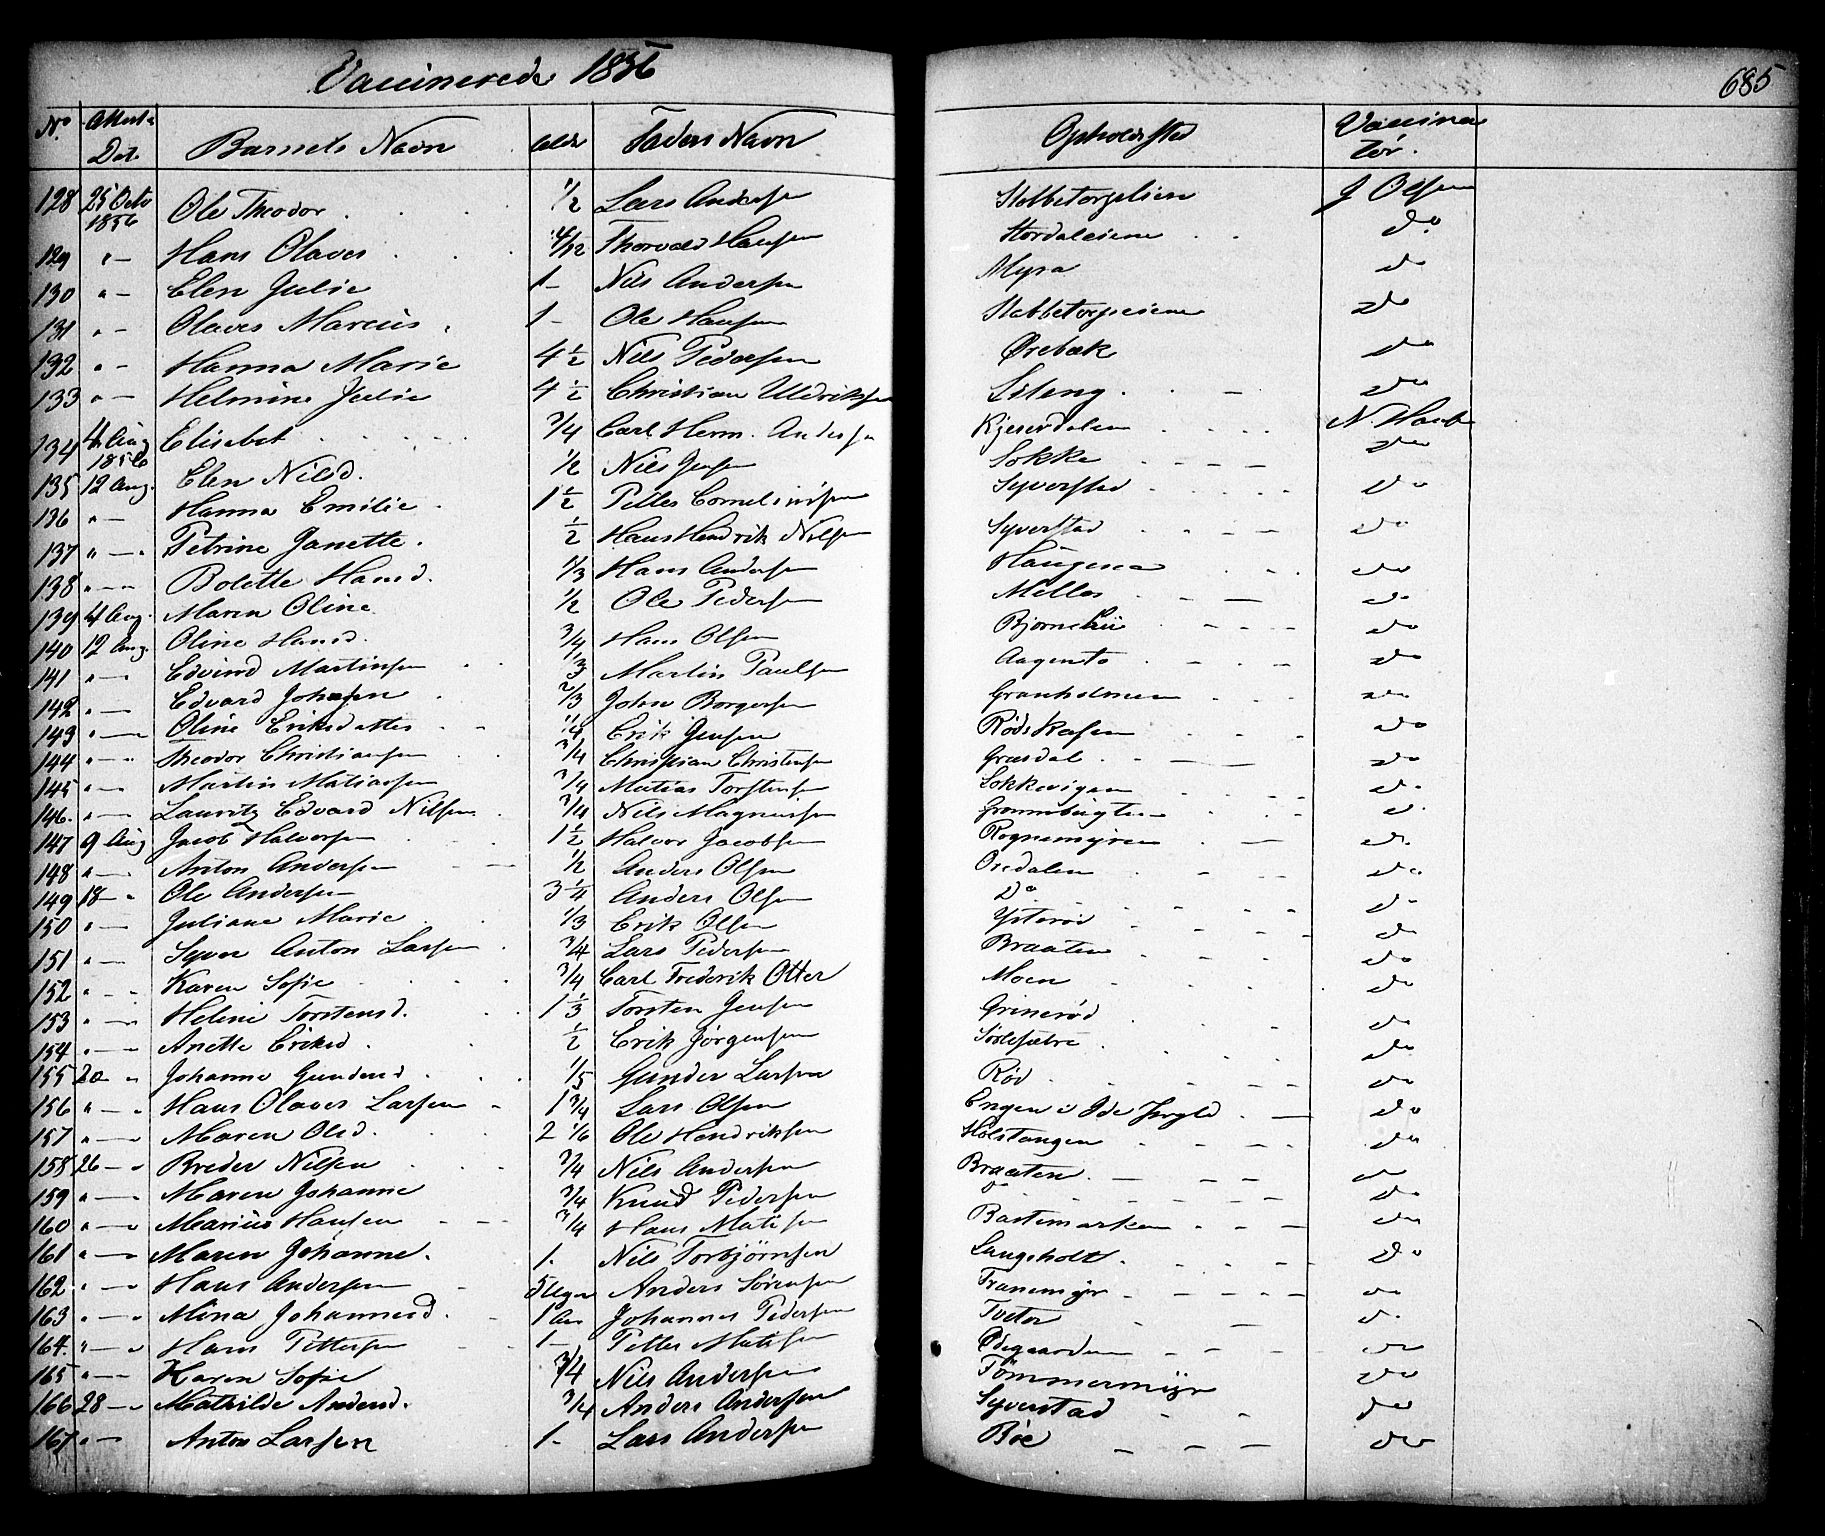 Vaccinerede 1856
685
No Attest Dat. Barnets Navn Alder Faders Navn Opholdssted Vaccinatör.
128 25 Octo 1856 Ole Theodor 1/2 Lars Andersen J Olsen
129 " — Hans Olaves 4/12 Thorvald Hansen Stordaleiene do
130 " — Elen Julie 1 - Nils Andersen Myra do
131 " — Olaves Marcus 1 - Ole Hansen Stabbetorpeiene do
132 " — Hanna Marie 4 1/2 Nils Pedersen Ørebæk do
133 " — Helmine Julie 4 1/2 Christian Uldriksen Lileng do
134 4 Aug 1856 Elisabet 3/4 Carl Herm. Andersen Kjeserdalen N. Haab
135 12 Aug. Elen Nilsd. 1/2 Nils Jensen Sokke do
136 " — Hanna Emilie 1 1/2 Petter Corneliussen Syverstad do
137 " — Petrine Janette. 1/2 Hans Hendrik Nilsen Syverstad do
138 " — Bolette Hansd. 1/3 Hans Andersen do
139 4 Aug. Maren Oline 1/2 Ole Pedersen Melleb do
140 12 Aug. Oline Hansd. 3/4 Hans Olsen do
141 " — Edvind Martinsen 1/3 Martin Paulsen do
142 " — Edvard Johnsen 2/3 John Borgersen Granholmen do
143 " — Oline Eriksdatter 1/4 Erik Jensen Rødskasen do
144 " — Theodor Christiansen 3/4 Christian Christensen Græsdal do
145 " — Martin Matiassen 3/4 Matias Torstensen Sokkevigen do
146. " — Lauritz Edvard Nilsen 3/4 Nils Magnussen Grønnbugten d.
147 9 Aug Jacob Halvorsen 1 1/2 Halvor Jacobsen Rognemyren do.
148 " — Anton Andersen 1/2 Anders Olsen Oredalen do
149 18 — " Ole Andersen 3 1/4 Anders Olsen Do do
150 " — Juliane Marie 1/3 Erik Olsen Ysterød do
151 " — Syver Anton Larsen 3/4 Lars Pedersen Braaten do
152 " — Karen Sofie 3/4 Carl Frederik Otter Moen do
153 " — Heline Torstensd. 1 1/3 Torsten Jensen Grinerød do
154 " — Anette Eriksd 1/2 Erik Jørgensen Sørlesætre do
155 20 " Johanne Gundersd 1/5 Gunder Larsen Rød do
156 " — " Hans Olaves Larsen 1 3/4 Lars Olsen Engen i Ide do
157 " — Maren Olsd. 2 1/6 Ole Hendriksen Holstangen do
158 26 — " Breder Nilsen 3/4 Nils Andersen Braaten do
159 " — Maren Johanne 3/4 Knud Pedersen do do
160 " — Marius Hansen 3/4 Hans Matisen Bastemarken do
161 " — Maren Johanne. 1. Nils Torbjørnsen Langeholt do
162 " — Hans Andersen 5 Uger Anders Sørensen Tranemyr do
163 " — " Mina Johannesd. 1 Aar Johannes Pedersen Tveter d.
164. " — " Hans Pettersen 1 — Petter Matisen Ødegaarden do
165 " — Karen Sofie 3/4 Nils Andersen Tømmermyr do
166 28 — " Mathilde Andersd. 3/4 Anders Andersen Syverstad do
167 " — Anton Larsen 1 - Lars Andersen Bøe do